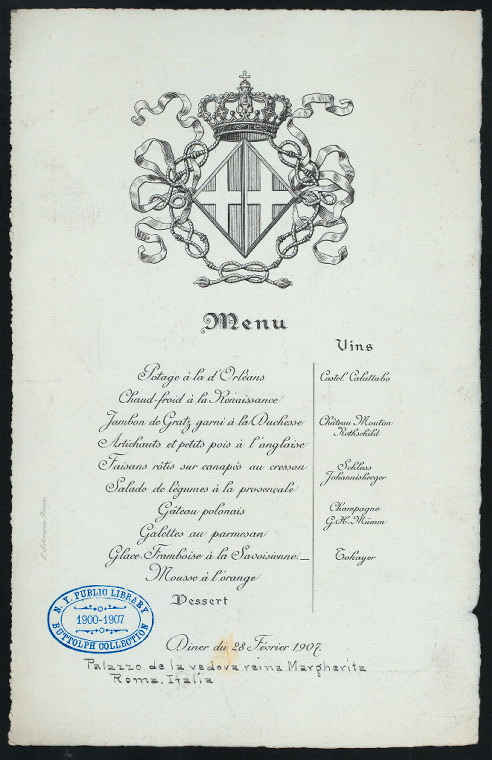 Menu
Vins
Potage à la d'Orléans
Castel Calattubo
Chaud-froid à la Renaissance
Jambon de Gratz garni à la Duchesse
Château Mouton
Rothschild
Artichauts et petits pois à l'anglaise
Faisans rôtis sur canapés au cresson
Schloss
Johannisberger
Salade de légumes à la provençale
Gâteau polonais
Champagne
G. H. Mümm
Galettes au parmesan
Glace Framboise à la Savoisienne._
Tokayer
Mousse à l'orange
Dessert
N. Y. PUBLIC LIBRARY
1900-1907
BUTTOLPH COLLECTION
Dîner du 28 Février 1907.
Palazzo de la vedova reina Margherita
Roma, Italia